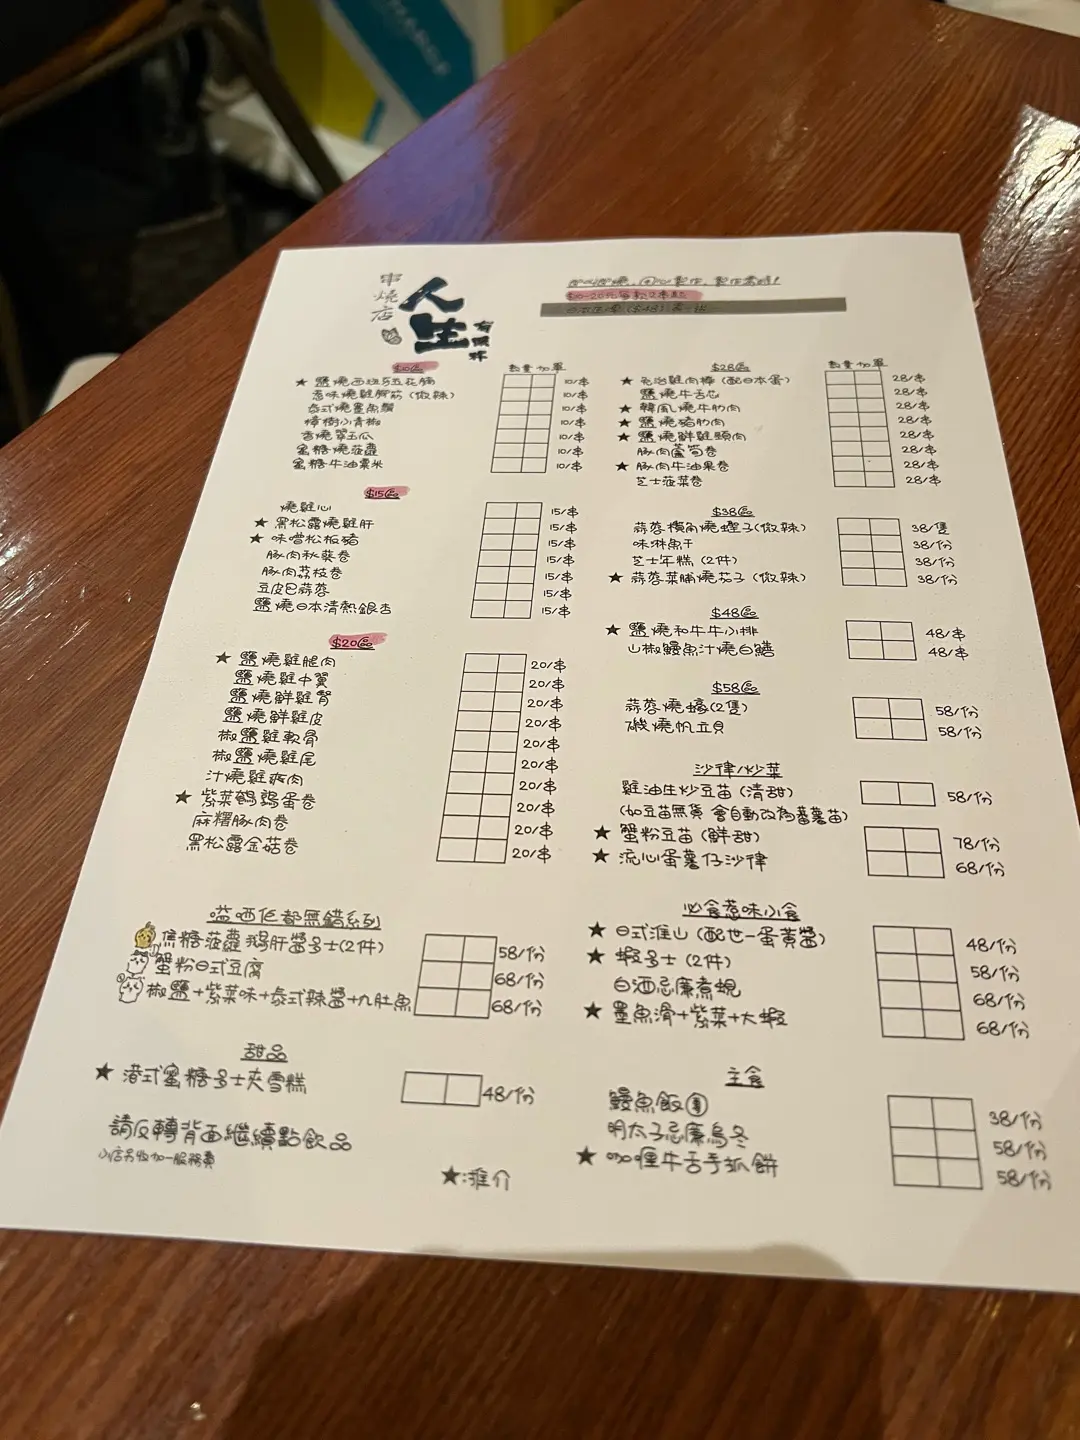 串燒店
人生
有限杯
$10-20元每款2串起
數量 加單
$10區
★ 鹽燒西班牙五花腩 10/串
惹味燒雞腳筋(微辣) 10/串
泰式燒墨魚鬚 10/串
樟樹小青椒 10/串
香燒翠玉瓜 10/串
蜜糖燒菠蘿 10/串
蜜糖牛油粟米 10/串
$15區
燒雞心 15/串
★ 黑松露燒雞肝 15/串
★ 味噌松板豬 15/串
豚肉秋葵卷 15/串
豚肉荔枝卷 15/串
豆皮巴蒜蓉 15/串
鹽燒日本清熱銀杏 15/串
$20區
★ 鹽燒雞腿肉 20/串
鹽燒雞中翼 20/串
鹽燒鮮雞腎 20/串
鹽燒鮮雞皮 20/串
椒鹽雞軟骨 20/串
椒鹽燒雞尾 20/串
汁燒雞爽肉 20/串
★ 紫菜鵪鶉蛋卷 20/串
麻糬豚肉卷 20/串
黑松露金菇卷 20/串
嗌哂佢都無錯系列
焦糖菠蘿鵝肝醬多士(2件) 58/份
蟹粉日式豆腐 68/份
椒鹽+紫菜味+泰式辣醬+九肚魚 68/份
甜品
★ 港式蜜糖多士夾雪糕 48/份
請反轉背面繼續點飲品
小店另收加一服務費
★:推介
數量 加單
$28區
★ 免治雞肉棒(配日本蛋) 28/串
鹽燒牛舌芯 28/串
★ 韓風燒牛肋肉 28/串
★ 鹽燒豬肋肉 28/串
★ 鹽燒鮮雞頸肉 28/串
豚肉蘆筍卷 28/串
★ 豚肉牛油果卷 28/串
芝士菠菜卷 28/串
$38區
蒜蓉橫角燒蟶子(微辣) 38/隻
味淋魚干 38/份
芝士年糕(2件) 38/份
★ 蒜蓉菜脯燒茄子(微辣) 38/份
$48區
★ 鹽燒和牛牛小排 48/串
山椒鰻魚汁燒白鱔 48/串
$58區
蒜蓉燒蠔(2隻) 58/份
磯燒帆立貝 58/份
沙律/炒菜
雞油生炒豆苗(清甜) 58/份
(如豆苗無貨 會自動改為蕃薯苗)
★ 蟹粉豆苗(鮮甜) 78/份
★ 流心蛋薯仔沙律 68/份
必食惹味小食
★ 日式淮山(配世一蛋黃醬) 48/份
★ 蝦多士(2件) 58/份
白酒忌廉煮蜆 68/份
★ 墨魚滑+紫菜+大蝦 68/份
主食
鰻魚飯 38/份
明太子忌廉烏冬 58/份
★ 咖喱牛舌手抓餅 58/份